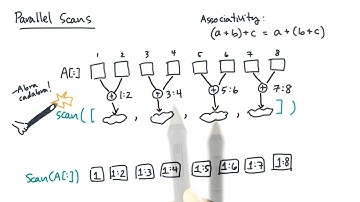 Parallel Scans
Associativity:
(a+b)+c = a+(b+c)
1 2 3 4 5 6 7 8
A[:]
+ 1:2 + 3:4 + 5:6 + 7:8
-Abra
cadabra!
scan([ , , , ])
Scan(A[:]) 1 1:2 1:3 1:4 1:5 1:6 1:7 1:8